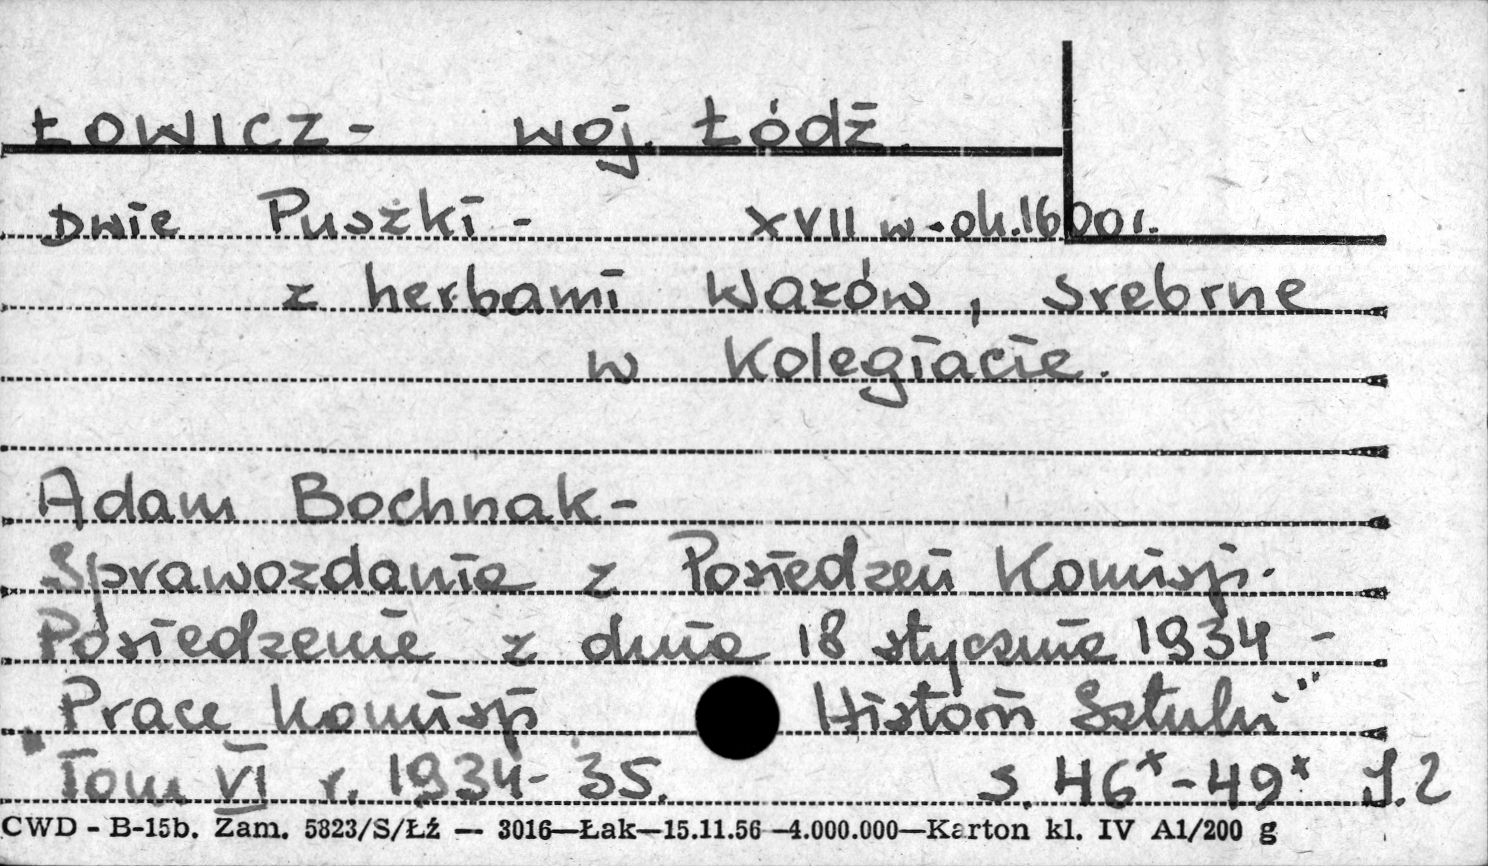 ŁOWICZ - woj. Łódź.
Dwie Puszki - XVII w - ok. 1600 r.
z herbami Wazów, srebrne
w Kolegiacie.
Adam Bochnak -
Sprawozdania z Posiedzeń Komisji.
Posiedzenie z dnia 18 stycznia 1934 -
"Prace Komisji Historii Sztuki"
Tom VI r. 1934-35. s. 46*-49* J.2
CWD - B-15b. Zam. 5823/S/Łź — 3016—Łak—15.11.56—4.000.000—Karton kl. IV A1/200 g